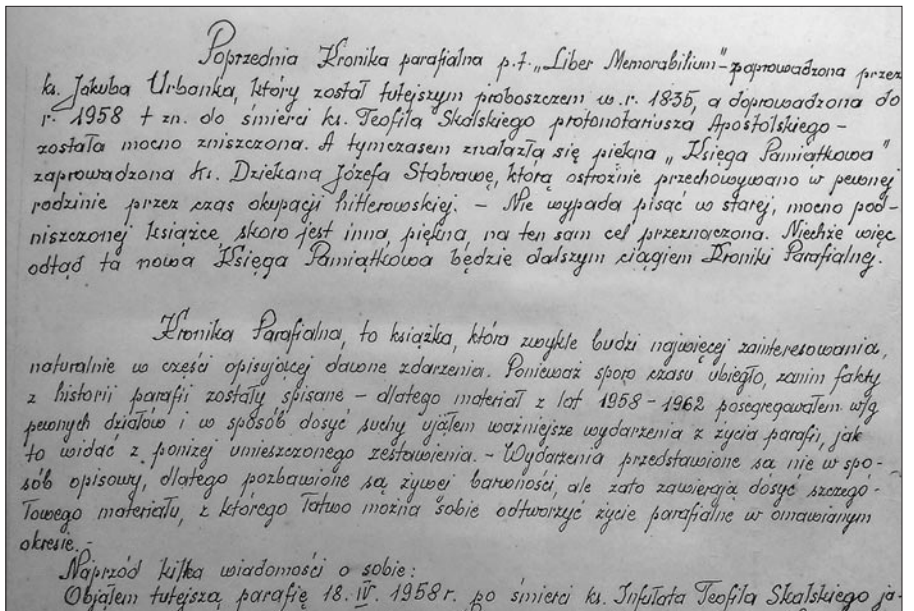 Poprzednia Kronika parafialna p.t. „Liber Memorabilium" - zaprowadzona przez
ks. Jakuba Urbanka, który został tutejszym proboszczem w.r. 1835, a doprowadzona do
r. 1958 t zn. do śmierci ks. Teofila Skalskiego protonotariusza Apostolskiego -
została mocno zniszczona. A tymczasem znalazła się piękna „Księga Pamiątkowa"
zaprowadzona ks. Dziekana Józefa Stabrawę, którą ostrożnie przechowywano w pewnej
rodzinie przez czas okupacji hitlerowskiej. - Nie wypada pisać w starej, mocno pod-
niszczonej książce, skoro jest inna, piękna, na ten sam cel przeznaczona. Niechże więc
odtąd ta nowa Księga Pamiątkowa będzie dalszym ciągiem Kroniki Parafialnej.
Kronika Parafialna, to książka, która zwykle budzi najwięcej zainteresowania,
naturalnie w części opisującej dawne zdarzenia. Ponieważ sporo czasu ubiegło, zanim fakty
z historii parafii zostały spisane - dlatego materiał z lat 1958 - 1962 posegregowałem w/g
pewnych działów i w sposób dosyć suchy ująłem ważniejsze wydarzenia z życia parafii, jak
to widać z poniżej umieszczonego zestawienia. - Wydarzenia przedstawione są nie w spo-
sób opisowy, dlatego pozbawione są żywej barwności, ale zato zawierają dosyć szczegó-
łowego materiału, z którego łatwo można sobie odtworzyć życie parafialne w omawianym
okresie. -
Naprzód kilka wiadomości o sobie:
Objąłem tutejszą parafię 18. IV. 1958 r. po śmierci ks. Infułata Teofila Skalskiego ja-